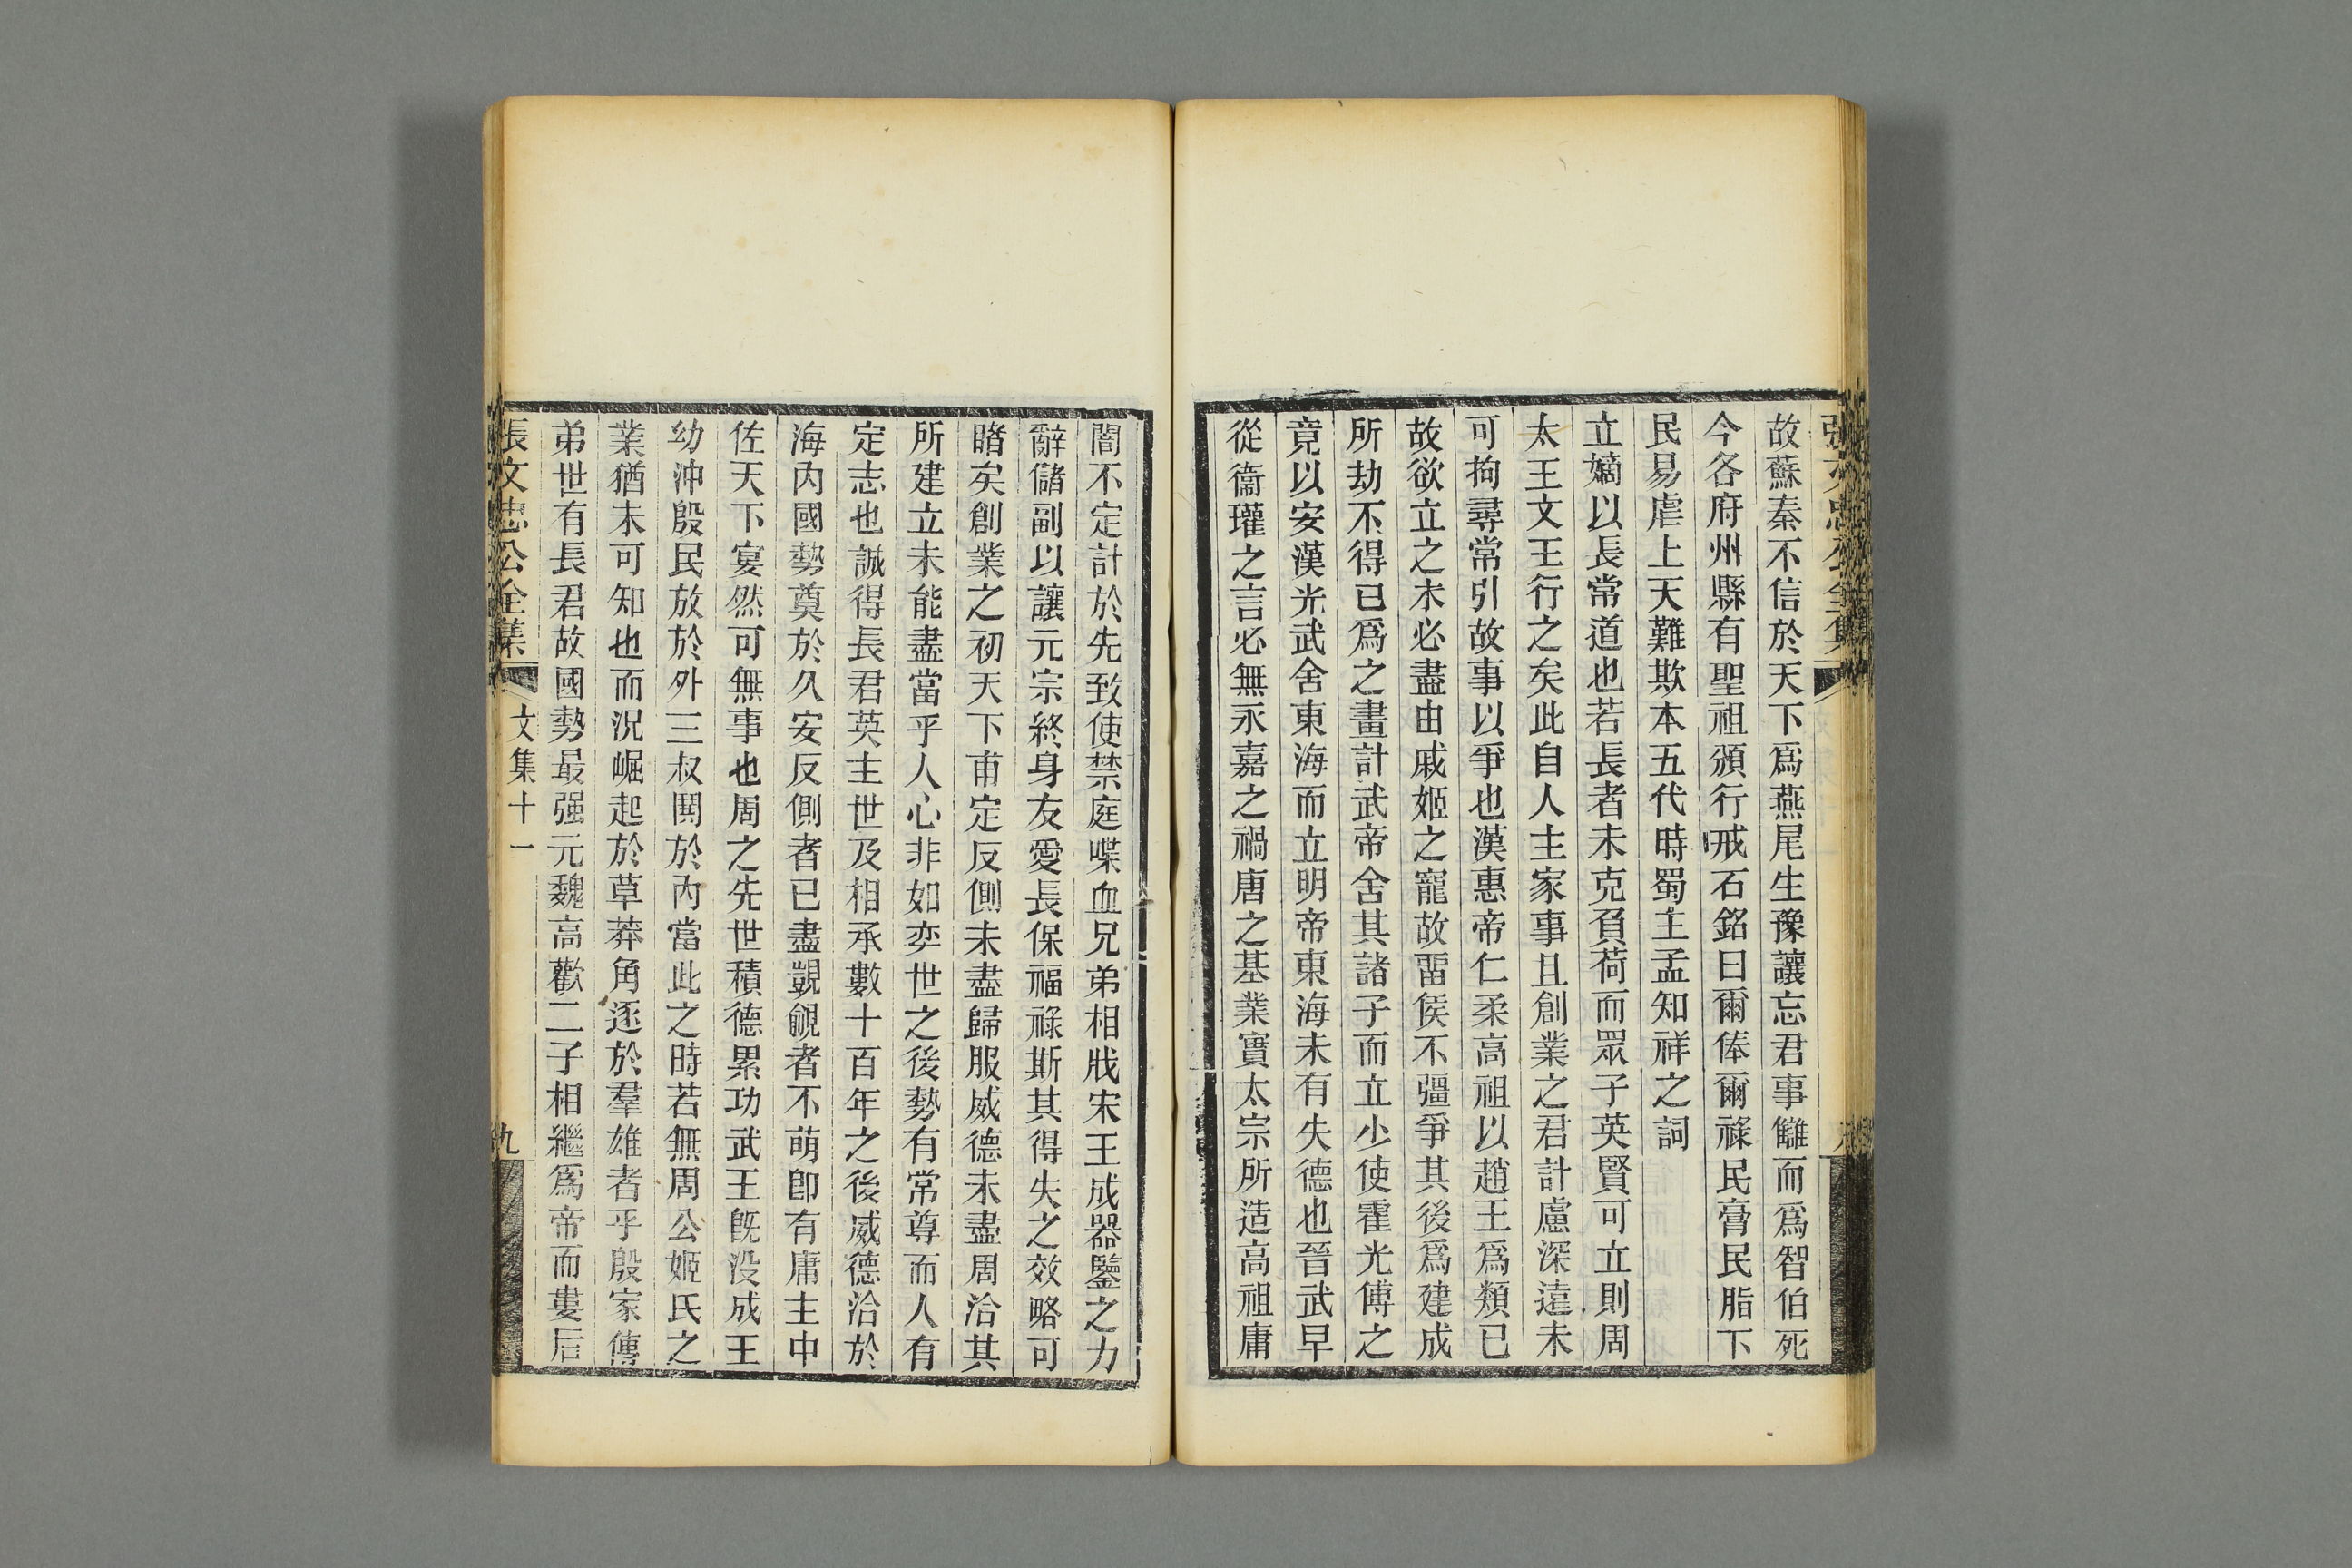 故蘇秦不信於天下爲燕尾生豫讓忘君事讎而爲智伯死
今各府州縣有聖祖頒行戒石銘曰爾俸爾祿民膏民脂下
民易虐上天難欺本五代時蜀主孟知祥之詞
立嫡以長常道也若長者未克負荷而眾子英賢可立則周
太王文王行之矣此自人主家事且創業之君計慮深遠未
可拘尋常引故事以爭也漢惠帝仁柔高祖以趙王爲類已
故欲立之未必盡由戚姬之寵故畱侯不彊爭其後爲建成
所劫不得已爲之畫計武帝舍其諸子而立少使霍光傅之
竟以安漢光武舍東海而立明帝東海未有失德也晉武早
從衞瓘之言必無永嘉之禍唐之基業實太宗所造高祖庸
闇不定計於先致使禁庭喋血兄弟相戕宋王成器鑒之力
辭儲副以讓元宗終身友愛長保福祿斯其得失之效略可
睹矣創業之初天下甫定反側未盡歸服威德未盡周洽其
所建立未能盡當乎人心非如奕世之後勢有常尊而人有
定志也誠得長君英主世及相承數十百年之後威德洽於
海內國勢奠於久安反側者已盡覬覦者不萌卽有庸主中
佐天下宴然可無事也周之先世積德累功武王旣沒成王
幼沖殷民放於外三叔鬩於內當此之時若無周公姬氏之
業猶未可知也而況崛起於草莽角逐於羣雄者乎殷家傳
弟世有長君故國勢最强元魏高歡二子相繼爲帝而婁后
張文忠公全集 文集十一 九